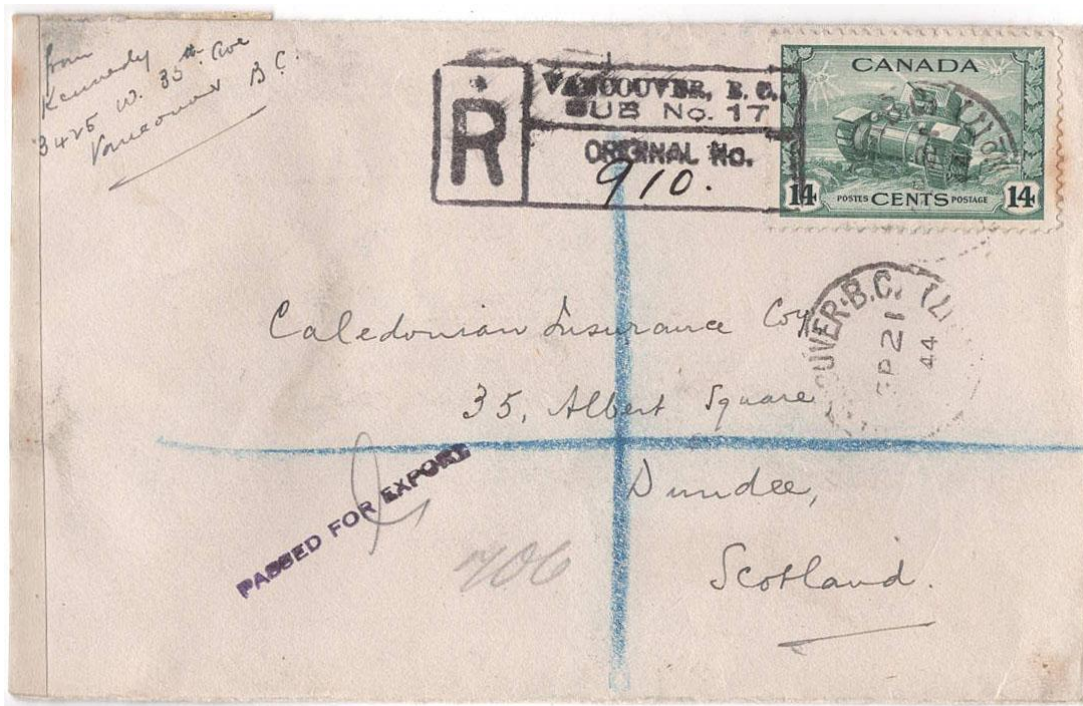 from
Kennedy
3425 W. 35th Ave
Vancouver B.C.
R
VANCOUVER, B. C.
SUB No. 17
ORIGINAL No.
910.
CANADA
14 POSTES CENTS POSTAGE 14
Caledonian Insurance Coy
35, Albert Square
Dundee,
Scotland.
OUVER·B.C.
SP 21
44
PASSED FOR EXPORT
706